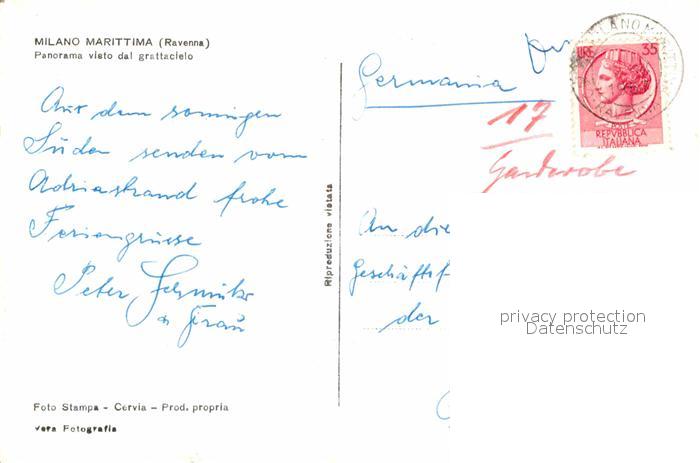 MILANO MARITTIMA (Ravenna)
Panorama visto dal grattacielo
Aus dem sonnigen
Süden senden vom
Adriastrand frohe
Feriengrüsse
Peter
u Frau
Foto Stampa - Cervia - Prod. propria
Vera Fotografia
Riproduzione vietata
Germania
LIRE 35
REPVBBLICA
ITALIANA
17
Garderobe
An die
Geschäftsf
der
privacy protection
Datenschutz